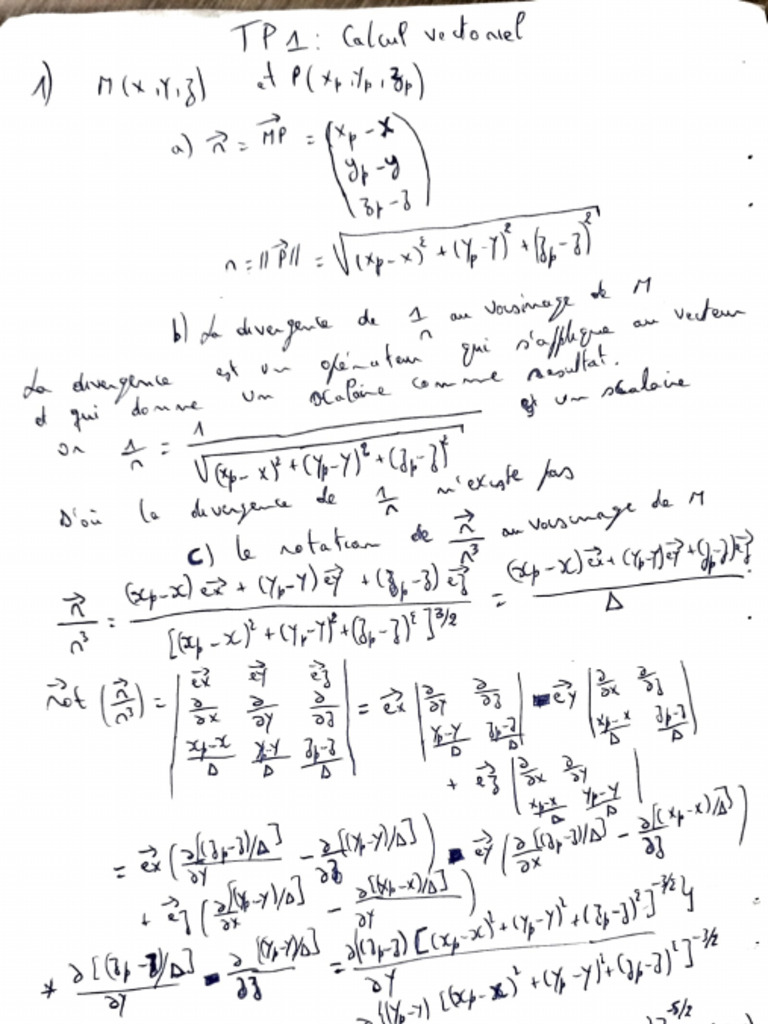 TP1: Calcul vectoriel
1) M(x,y,z) et P(xp,yp,zp)
a) r⃗ = MP⃗ = (xp-x
yp-y
zp-z)
r = ||P⃗|| = √((xp-x)² + (yp-y)² + (zp-z)²)
b) La divergence de 1/r au voisinage de M
La divergence est un opérateur qui s'applique au vecteur
et qui donne un scalaire comme resultat.
or 1/r = 1/√((xp-x)² + (yp-y)² + (zp-z)²) est un scalaire
D'où la divergence de 1/r n'existe pas
c) le rotation de r⃗/r³ au voisinage de M
r⃗/r³ = ((xp-x)ex⃗ + (yp-y)ey⃗ + (zp-z)ez⃗)/[(xp-x)² + (yp-y)² + (zp-z)²]^3/2 = ((xp-x)ex⃗ + (yp-y)ey⃗ + (zp-z)ez⃗)/Δ
rot⃗ (r⃗/r³) = | ex⃗ ey⃗ ez⃗ ; ∂/∂x ∂/∂y ∂/∂z ; (xp-x)/Δ (yp-y)/Δ (zp-z)/Δ | = ex⃗ | ∂/∂y ∂/∂z ; (yp-y)/Δ (zp-z)/Δ | - ey⃗ | ∂/∂x ∂/∂z ; (xp-x)/Δ (zp-z)/Δ |
+ ez⃗ | ∂/∂x ∂/∂y ; (xp-x)/Δ (yp-y)/Δ |
= ex⃗ (∂[(zp-z)/Δ]/∂y - ∂[(yp-y)/Δ]/∂z) - ey⃗ (∂[(zp-z)/Δ]/∂x - ∂[(xp-x)/Δ]/∂z)
+ ez⃗ (∂[(yp-y)/Δ]/∂x - ∂[(xp-x)/Δ]/∂y)
* ∂[(zp-z)/Δ]/∂y - ∂[(yp-y)/Δ]/∂z = ∂{(zp-z)[(xp-x)² + (yp-y)² + (zp-z)²]^-3/2}/∂y
∂{(yp-y)[(xp-x)² + (yp-y)² + (zp-z)²]^-3/2
]^-5/2